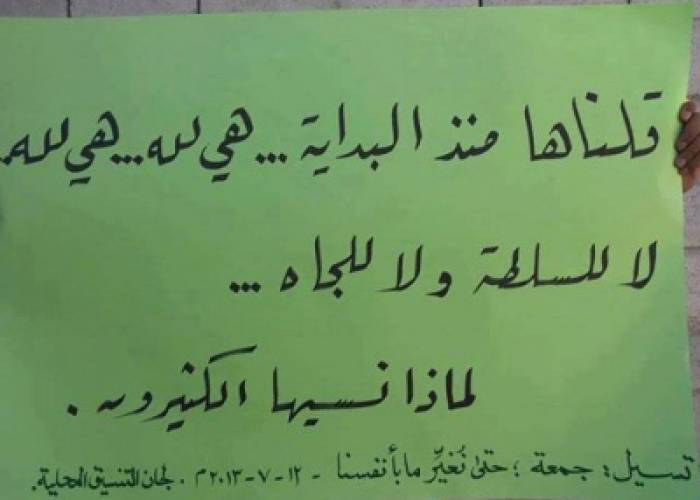 قلناها منذ البداية ... هي لله ... هي لله.
لا للسلطة ولا للجاه ...
لماذا نسيها الكثيرون .
تسيل : جمعة ؛ حتى نُغيِّر ما بأنفسنا - ١٢-٧-٢٠١٣م . لجان التنسيق المحلية .